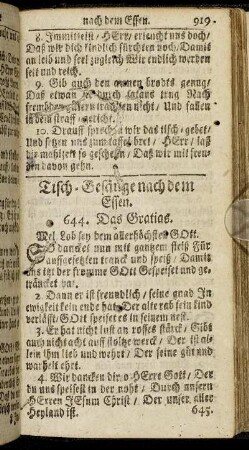 nach dem Essen. 919.
8. Immittelst / HErr / erleucht uns doch /
Daß wir dich kindlich fürchten noch / Damit
an leib und seel zugleich Wir endlich werden
seit und reich.
9. Gib auch den armen brodts genug /
Daß etwan
frembden gütern trachten nicht / Und fallen
in dein straff-gericht.
10. Drauff sprechen wir das tisch-gebet /
Und setzen uns zum taffel-bret / HErr / laß
die mahlzeit so geschehn / Daß wir mit freu-
den davon gehn.
Tisch-Gesänge nach dem
Essen.
644. Das Gratias.
Mel. Lob sey dem allerhöchsten GOtt.
So dancket nun mit gantzem fleiß Für
auffgesetzten tranck und speiß / Damit
uns itzt der fromme GOtt Gespeiset und ge-
träncket
2. Dann er ist freundlich / seine gnad In
ewigkeit kein ende hat / Der alte rab sein kind
verläßt / GOtt speiset es in seinem nest.
3. Er hat nicht lust an rosses stärck / Gibt
auch nicht acht auff stoltze werck / Der ist al-
lein ihm lieb und wehrt / Der seine güt und
warheit ehrt.
4. Wir dancken dir o HErre Gott / Der
du uns speisest in der noht / Durch unsern
HErren JEsum Christ / Der unser aller
Heyland ist. 645.